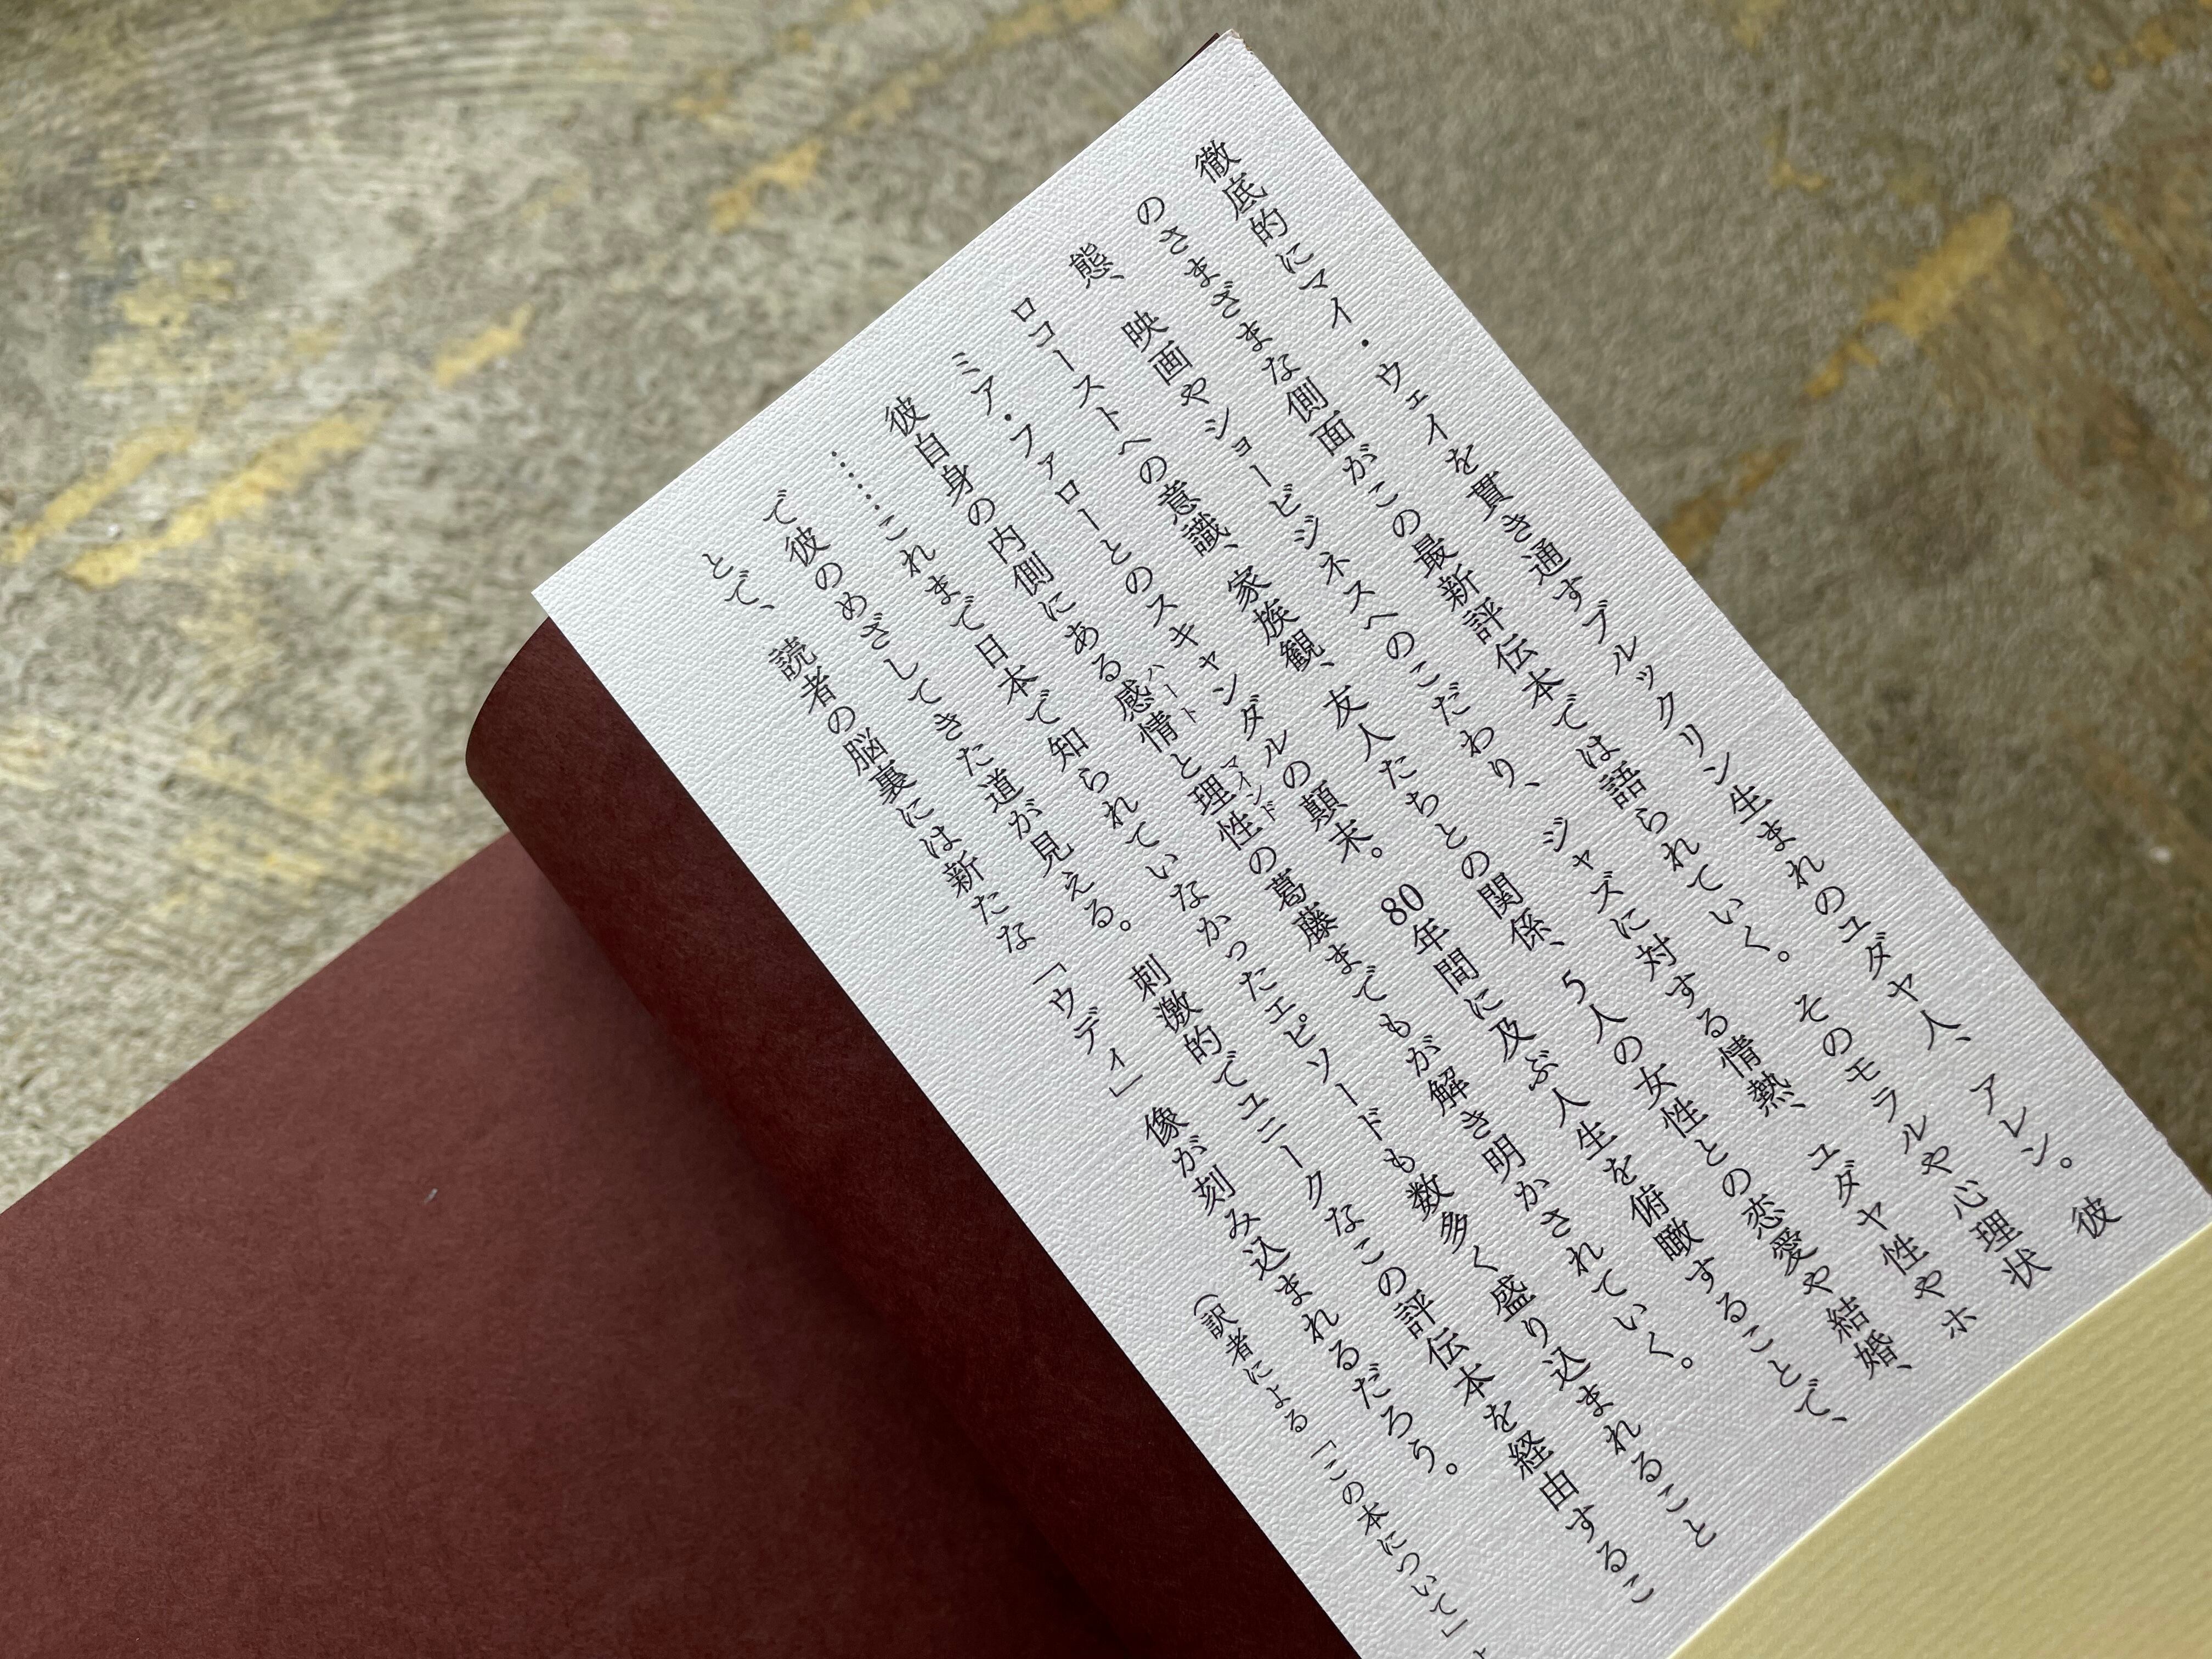 徹底的にマイ・ウェイを貫き通すブルックリン生まれのユダヤ人、アレン。彼
のさまざまな側面がこの最新評伝本では語られていく。そのモラルや心理状
態、映画やショービジネスへのこだわり、ジャズに対する情熱、ユダヤ性やホ
ロコーストへの意識、家族観、友人たちとの関係、5人の女性との恋愛や結婚、
ミア・ファローとのスキャンダルの顛末。80年間に及ぶ人生を俯瞰することで、
彼自身の内側にある感情ハートと理性マインドの葛藤までもが解き明かされていく。
……これまで日本で知られていなかったエピソードも数多く盛り込まれること
で彼のめざしてきた道が見える。刺激的でユニークなこの評伝本を経由するこ
とで、読者の脳裏には新たな「ウディ」像が刻み込まれるだろう。
（訳者による「この本について」よ